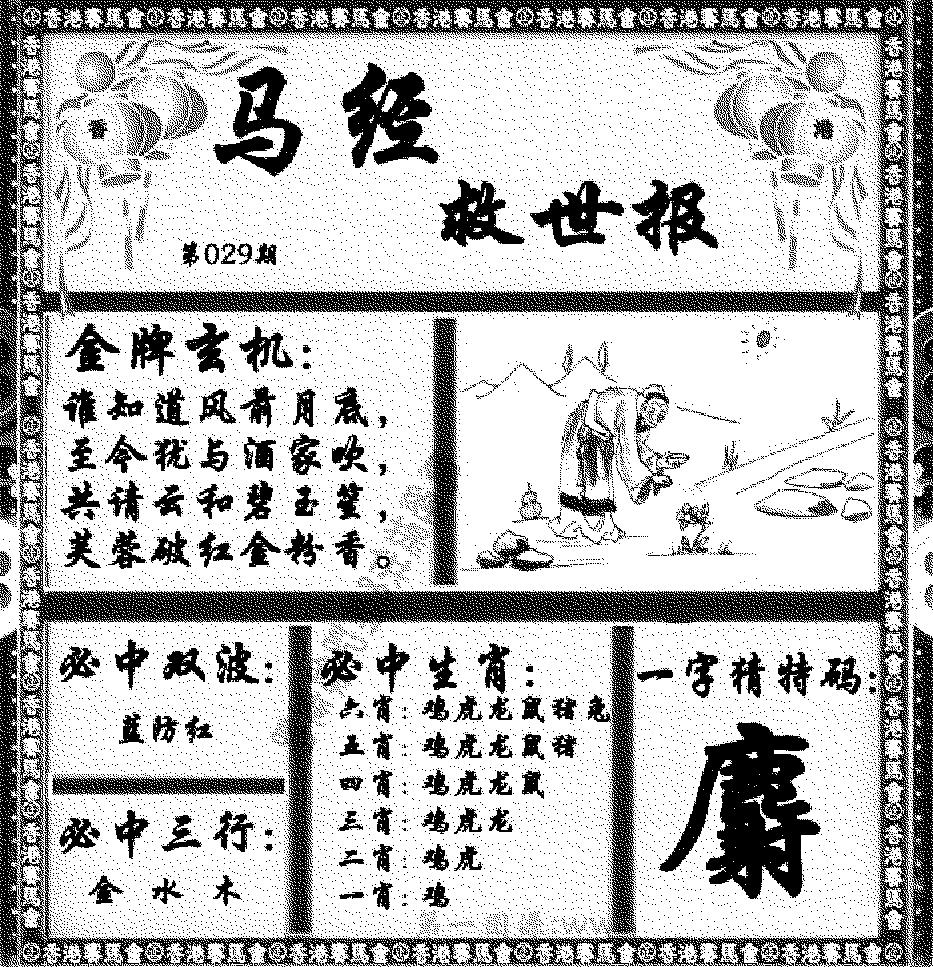 香港賽馬會 香港賽馬會 香港賽馬會 香港賽馬會 香港賽馬會 香港賽馬會 香港賽馬會
香
港
马经
救世报
第029期
金牌玄机：
谁知道风前月底，
至今犹与酒家吹，
共请云和碧玉笙，
芙蓉破红金粉香。
必中双波：
蓝防红
必中三行：
金 水 木
必中生肖：
六肖：鸡虎龙鼠猪兔
五肖：鸡虎龙鼠猪
四肖：鸡虎龙鼠
三肖：鸡虎龙
二肖：鸡虎
一肖：鸡
一字猜特码：
麝
香港賽馬會 香港賽馬會 香港賽馬會 香港賽馬會 香港賽馬會 香港賽馬會 香港賽馬會